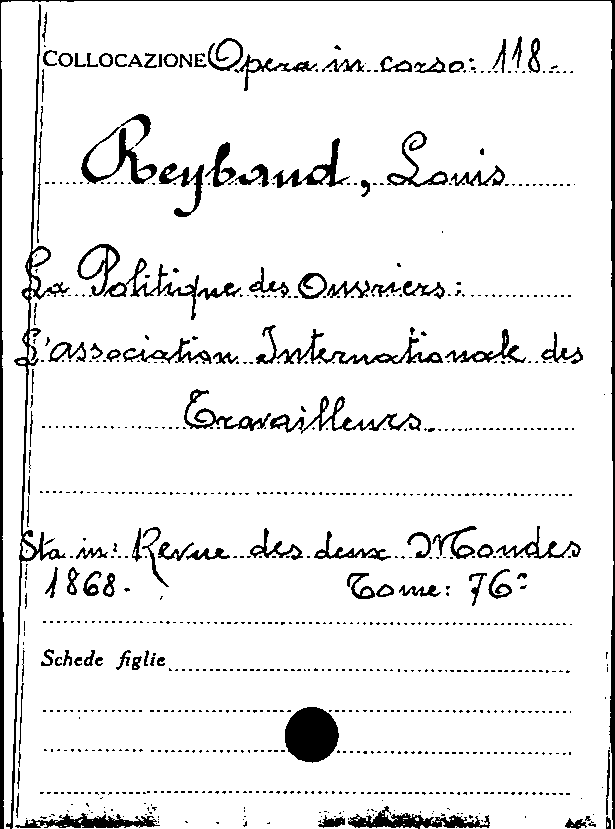 COLLOCAZIONE Opera in corso: 118.
Reybaud, Louis
La Politique des Ouvriers:
L'association Internationale des
Travailleurs.
Sta in: Revue des deux Mondes
1868. Tome: 76º
Schede figlie